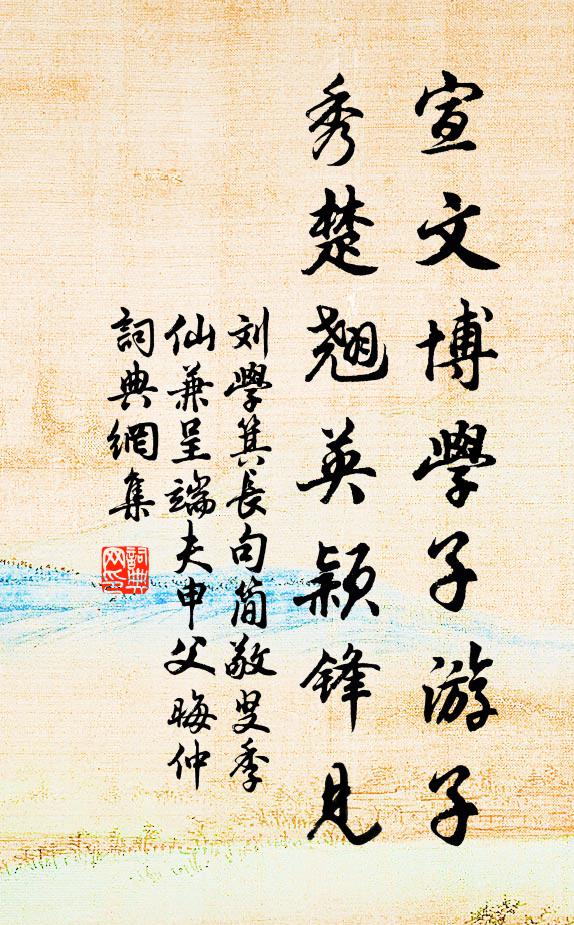 宣文博學子游子
秀楚翘英颖鋒見
刘學箕長句簡敬叟季
仙兼呈端夫申父晦仲
詞典網集
詞典
网